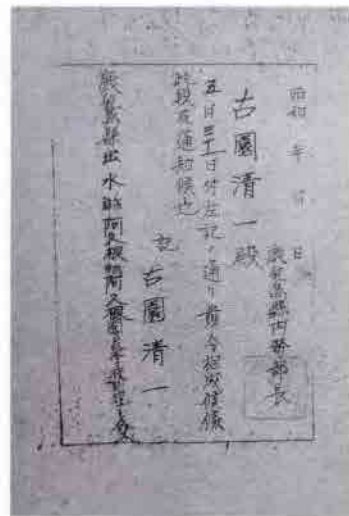 昭和 年 月 日
鹿児島縣内務部長
古園清一殿
五月三十一日付左記ノ通リ貴令相成候條
此段及通知候也
記
古園清一
鹿児島縣出水郡阿久根町阿久根